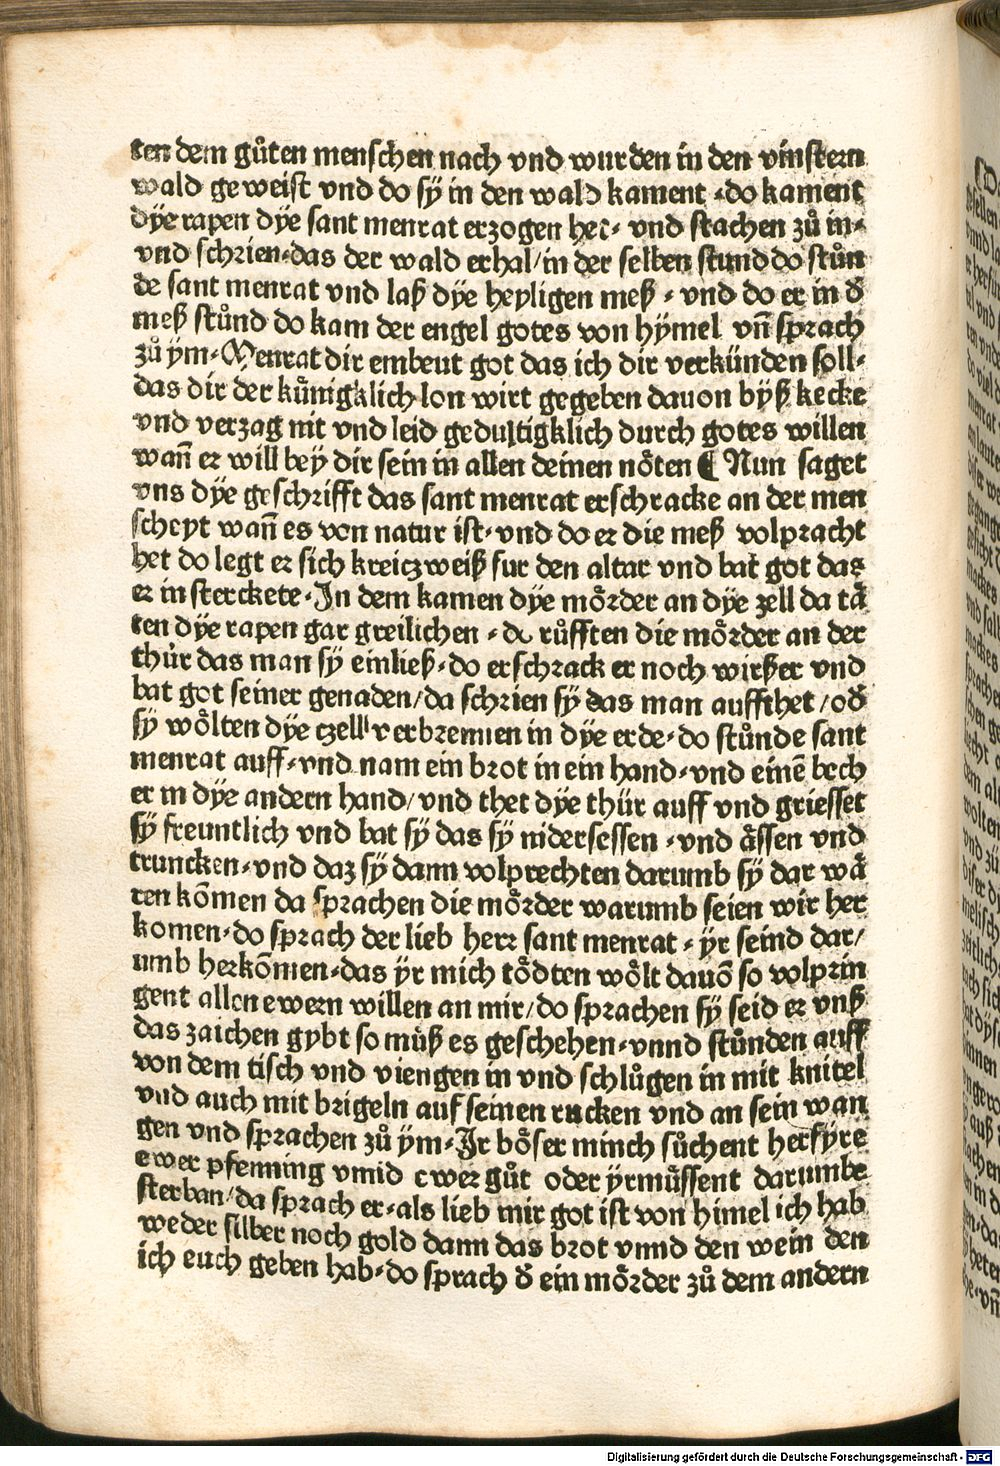 ten dem gůten menschen nach vnd wurden in den vinstern
wald geweist vnd do sÿ in den wald kament ⸗do kament
dÿe rapen dÿe sant menrat erzogen het⸗ vnd stachen zů in⸗
vnd schrien⸗das der wald erhal/in der selben stund do stůn
de sant menrat vnd laß dÿe heyligen meß ⸗ vnd do er in d̕
meß stůnd do kam der engel gotes von hÿmel vn̄ sprach
zů ÿm⸗Menrat dir embeut got das ich dir verkünden soll⸗
das dir der künigklich lon wirt gegeben dauon bÿß kecke
vnd verzag nit vnd leid gedultigklich durch gotes willen
wan̄ er will beÿ dir sein in allen deinen nöten ¶ Nun saget
vns dÿe geschrifft das sant menrat erschracke an der men
scheyt wan̄ es von natur ist⸗vnd do er die meß volpracht
het do legt er sich kreiczweiß fur den altar vnd bat got das
er in sterckete⸗In dem kamen dÿe mörder an dÿe zell da tä
ten dÿe rapen gar greilichen ⸗ do růfften die mörder an der
thür das man sÿ einließ⸗do erschrack er noch wirßer vnd
bat got seiner genaden/da schrien sÿ das man auffthet/od̕
sÿ wölten dÿe czell verbrennen in dÿe erde⸗do stůnde sant
menrat auff⸗vnd nam ein brot in ein hand⸗vnd einē bech
er in dÿe andern hand/vnd thet dÿe thür auff vnd griesset
sÿ freuntlich vnd bat sÿ das sÿ nidersessen ⸗vnd ässen vnd
truncken⸗vnd daz sÿ dann volprechten darumb sÿ dar wä
ren kōmen da sprachen die mörder warumb seien wir her
komen⸗do sprach der lieb herr sant menrat ⸗ ÿr seind dar/
umb herkōmen⸗das ÿr mich tödten wölt dauō so volprin
gent allen ewern willen an mir/do sprachen sÿ seid er vnß
das zaichen gybt so můß es geschehen⸗vnnd stůnden auff
von dem tisch vnd viengen in vnd schlůgen in mit knitel
vnd auch mit brigeln auf seinen rucken vnd an sein wan
gen vnd sprachen zů ÿm⸗Ir böser minch sůchent herfÿre
ewer pfenning vnnd ewer gůt oder ÿr müssent darumbe
sterban/da sprach er⸗als lieb mir got ist von himel ich hab
weder silber noch gold dann das brot vnnd den wein den
ich euch geben hab⸗do sprach d̕ ein mörder zů dem andern
Digitalisierung gefördert durch die Deutsche Forschungsgemeinschaft - DFG